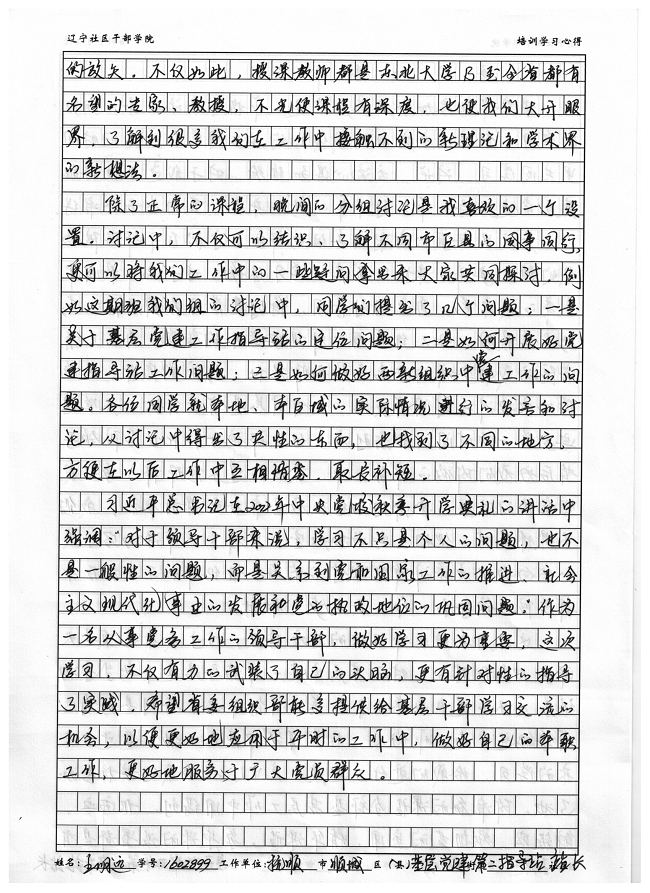 辽宁社区干部学院 培训学习心得
的放矢。不仅如此，授课教师都是东北大学乃至全省都有
名望的专家、教授，不光使课程有深度，也使我们大开眼
界，了解到很多我们在工作中接触不到的新理论和学术界
的新想法。
除了正常的课程，晚间的分组讨论是我喜欢的一个设
置。讨论中，不仅可以结识、了解不同市区县的同事同行，
更可以将我们工作中的一些疑问拿出来大家共同探讨，例
如这期班我们组的讨论中，同学们提出了几个问题：一是
关于基层党建工作指导站的定位问题；二是如何开展好党
建指导站工作问题；三是如何做好两新组织中党建工作的问
题。各位同学就本地、本区域的实际情况进行的发言和讨
论，从讨论中得出了共性的东西，也找到了不同的地方，
方便在以后工作中互相借鉴，取长补短。
习近平总书记在中央党校秋季开学典礼的讲话中
强调："对于领导干部来说，学习不只是个人的问题，也不
是一般性的问题，而是关系到党和国家工作的推进、社会
主义现代化事业的发展和党的执政地位的巩固问题。"作为
一名从事党务工作的领导干部，做好学习更为重要，这次
学习，不仅有力的武装了自己的头脑，更有针对性的指导
了实践，希望省委组织部能多提供给基层干部学习交流的
机会，以便更好地应用于平时的工作中，做好自己的本职
工作，更好地服务于广大党员群众。
姓名：王明远 学号：1602899 工作单位：抚顺 市 顺城 区（县）基层党建第二指导站 站长